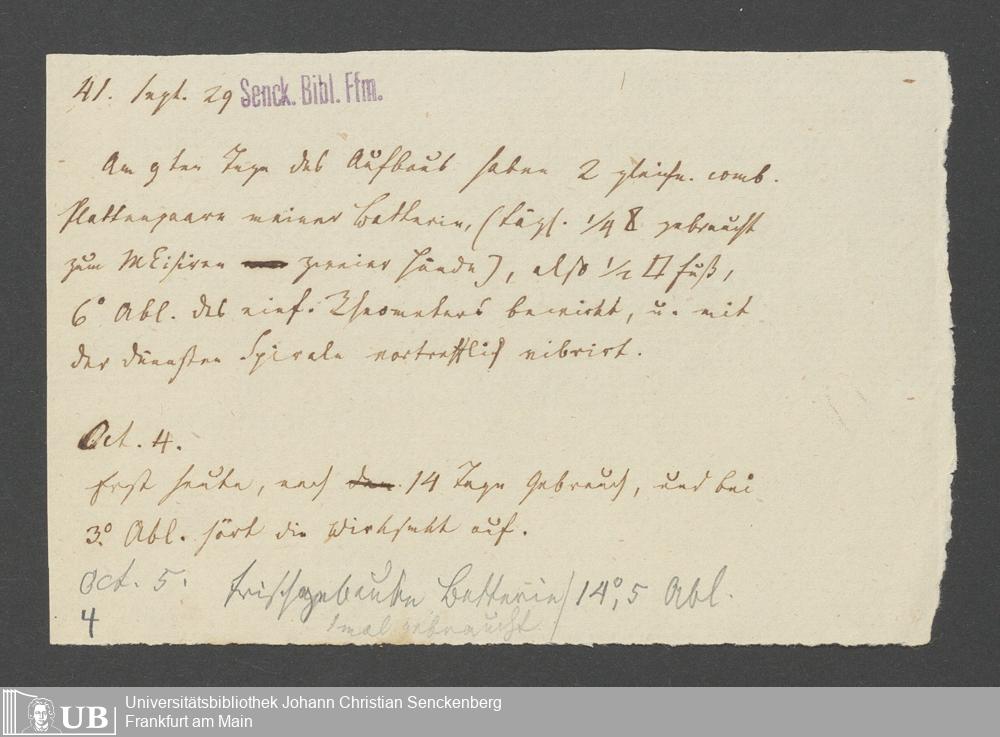 41. Sept. 29 Senck. Bibl. Ffm.
Am 9ten Tage des Aufbaus haben 2 gleiche. comb.
Plattenpaare meiner Batterie, (tägl. 1/4 gebraucht
zum zweier Hände), also 1/2 □ Fuß,
6° Abl. des einf. Rheometers bewirkt, u. mit
der dünnsten Spirale vortrefflich vibrirt.
Oct. 4.
Erst heute, nach 14 Tage Gebrauch, und bei
3° Abl. hört die auf.
Oct. 5. frischgebaute Batterie / 14°,5 Abl.
4 1mal gebraucht
UB Universitätsbibliothek Johann Christian Senckenberg
Frankfurt am Main